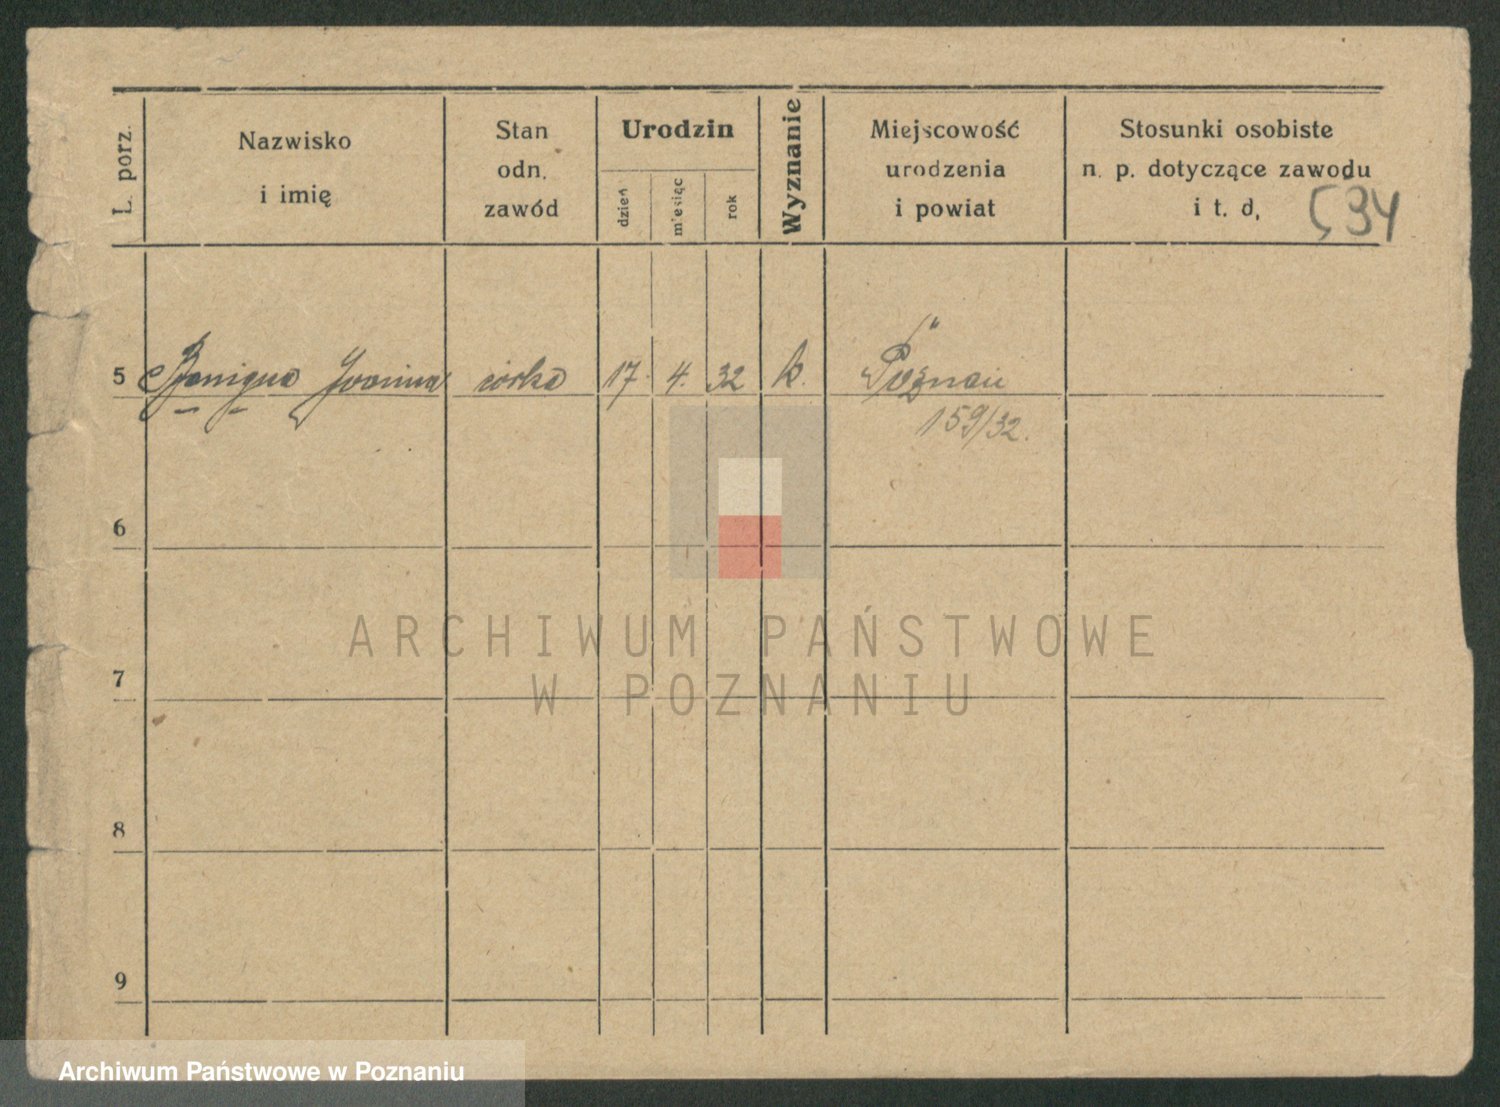 L. porz.
Nazwisko
i imię
Stan
odn.
zawód
Urodzin
dzień
miesiąc
rok
Wyznanie
Miejscowość
urodzenia
i powiat
Stosunki osobiste
n. p. dotyczące zawodu
i t. d,
534
5 córka 17. 4. 32 k. Poznań
159/32.
6
7
8
9
ARCHIWUM PAŃSTWOWE
W POZNANIU
Archiwum Państwowe w Poznaniu